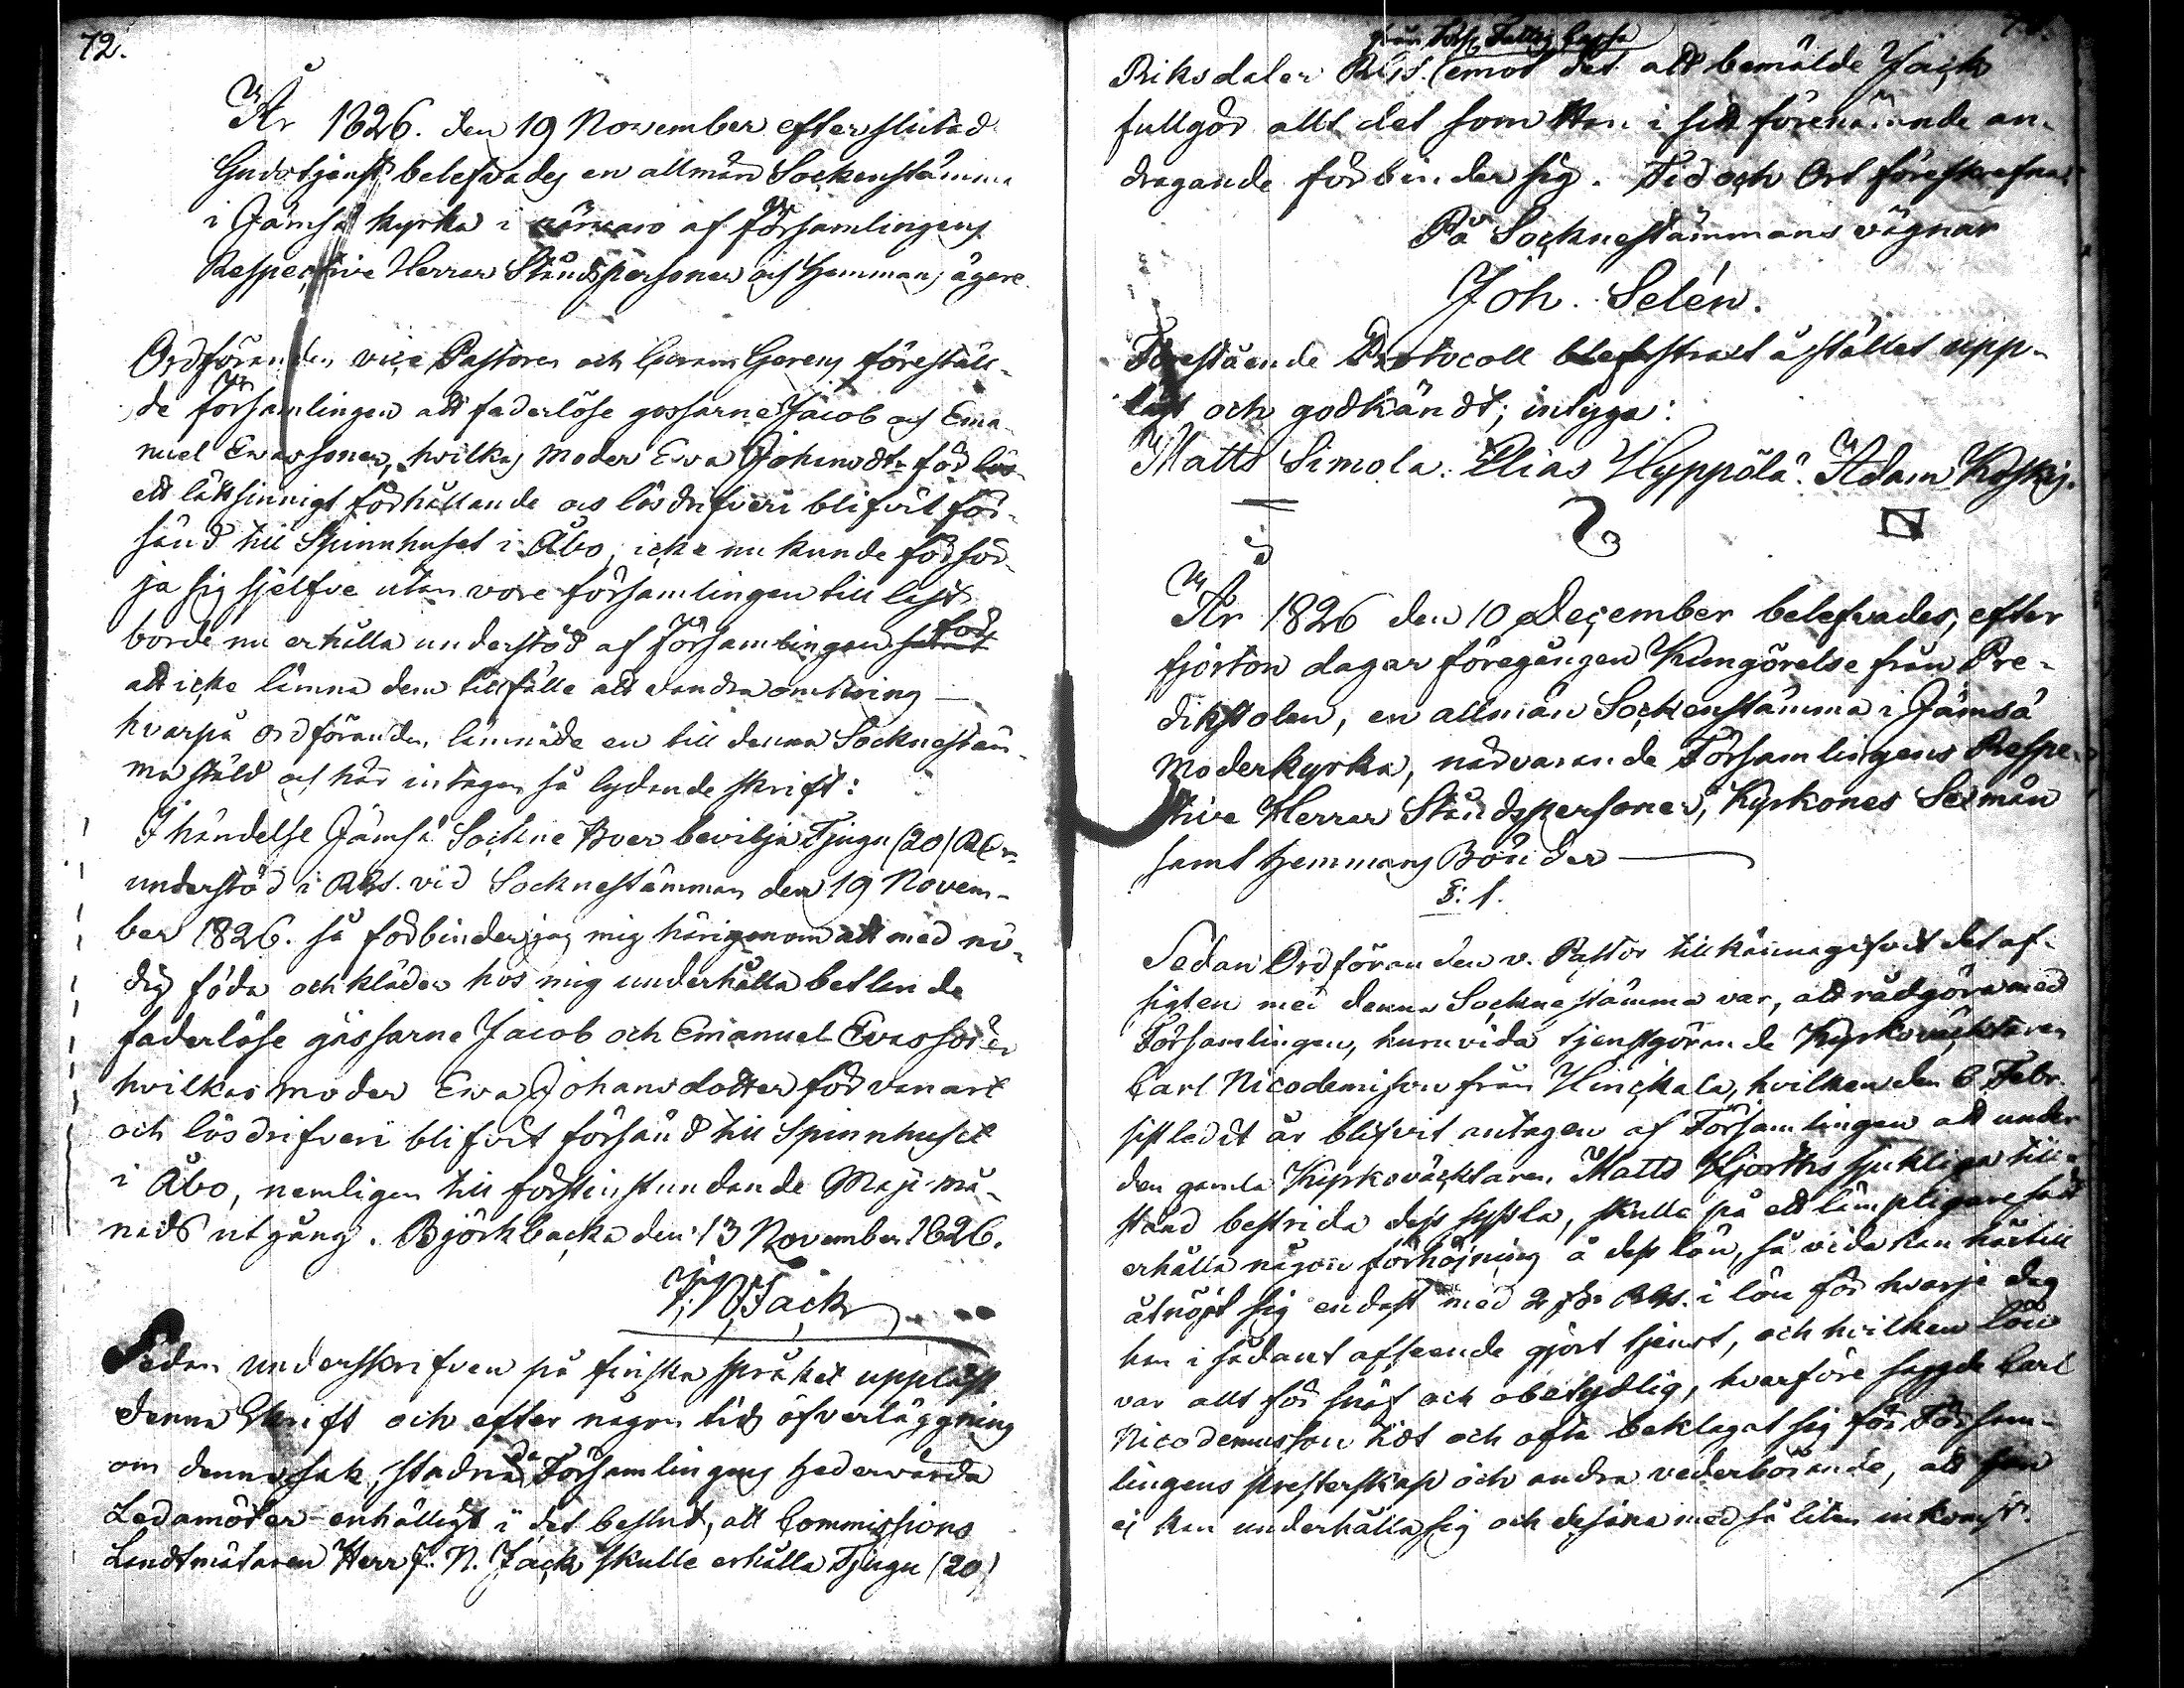 72.
År 1826. den 19 November efter slutad
Gudstjenst belefvades en allmän Sockenstämma
i Jämsä kyrka i närvaro af Församlingens
Respective Herrar Ståndspersoner och Hemmans ägare
Ordföranden vice Pastoren och Gerens föreställ-
de Församlingen att faderlöse gossarne Jacob och Ema-
nuel Evassoner, hvilkas Moder Eva Johansdtr för
ett lättsinnigt förhållande och lösdrifveri blifvit för-
sänd till Spinnhuset i Åbo, icke nu kunde försör-
ja sig sjelfve utan vore församlingen till last
borde nu erhålla understöd af Församlingen för
att icke lämna dem tillfälle att vandra omkring —
hvarpå Ordföranden lämnade en till denna Socknestäm-
ma ställd och här intagen så lydande skrift:
I händelse Jämsä Sockne Boer bevilja Tjugu (20) R
understöd i RGs. vid Socknestämman den 19 Novem-
ber 1826. så förbinder jag mig härigenom att med nö-
dig föda och kläder hos mig underhålla betlande
faderlöse gossarne Jacob och Emanuel Evassöner
hvilkas moder Eva Johansdotter för vanart
och lösdrifveri blifvit försänd till Spinnhuset
i Åbo, nemligen till förstinstundande Maji må-
nads utgång. Björkbacka den 13 November 1826.
J. N. Jack
Sedan underskrifven på finska språket uppläst
denna Skrift och efter någon tids öfverläggning
om denna sak, stadnade Församlingens hedervärda
Ledamöter enhälligt i det beslut, att Commissions
Landtmätaren Herr J. N. Jack skulle erhålla Tjugu (20)
från Förs. Fattig Cassa
Riksdaler RGs. (emot det att bemälde Jack
fullgör allt det som Han i sitt förenämnde an-
dragande förbinder sig. Tid och Ort föreskrefna
På Socknestämmans vägnar
Joh. Selén.
Förestående Protocoll blef strax å stället upp-
läst och godkändt; intyga:
Matts Simola. Elias Hyppölä. Adam Koski.
År 1826 den 10 December belefvades, efter
fjorton dagar föregången Kungörelse från Pre-
dikstolen, en allmän Sockenstämma i Jämsä
Moderkyrka, närvarande Församlingens Respec-
tive Herrar Ståndspersoner, Kyrkones Sexmän
samt Hemmans Bönder —
§: 1.
Sedan Ordföranden v. Pastor tillkännagifvit det af-
sigten med denna Socknestämma var, att rådgöra med
Församlingen, huruvida tjenstgörande Kyrkoväcktaren
Carl Nicodemison från Hinckala, hvilken den 6 Febr.
sistledit år blifvit antagen af Församlingen att under
den gamla Kyrkoväcktaren Matts Hjorths sjukliga till-
stånd bestrida dess syssla, skulle på ett lämpligare sätt
erhålla någon förhöjning å dess lön, så vida han härtill
åtnöjt sig endast med 2 RGs. i lön för hvarje dag
han i sådant afseende gjort tjenst, och hvilken lön
var allt för snäf och obetydlig, hvarföre sagde Carl
Nicodemusson tidt och ofta beklagat sig för Försam-
lingens presterskap och andra vederbörande, att han
ej kan underhålla sig och desina med så liten inkomst.